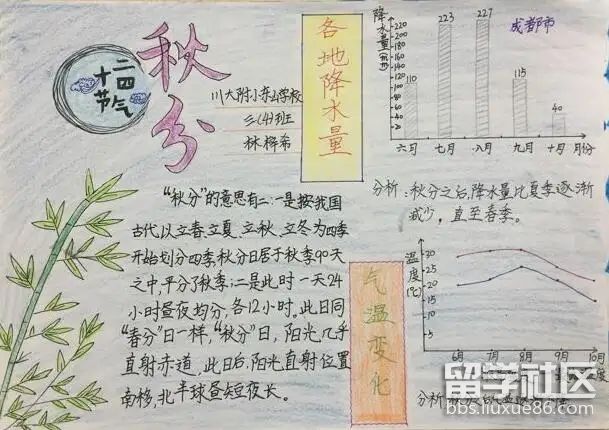 秋分
二四
十
节气
川大附小东山学校
三(4)班
林桦希
各地降水量
"秋分"的意思有二:一是按我国
古代以立春、立夏、立秋、立冬为四季
开始划分四季,秋分日居于秋季90天
之中,平分了秋季;二是此时一天24
小时昼夜均分,各12小时。此日同
"春分"日一样,"秋分"日,阳光几乎
直射赤道,此日后,阳光直射位置
南移,北半球昼短夜长。
成都市
降水量(㎜)
220
200
180
160
140
120
100
80
60
40
20
110
223
227
115
40
六月 七月 八月 九月 十月 月份
分析:秋分之后,降水量比夏季逐渐
减少,直至春季。
气温变化
温度(℃)
30
25
20
15
6月 7月 8月 9月 10月
分析:秋分
留学社区
bbs.liuxue86.com